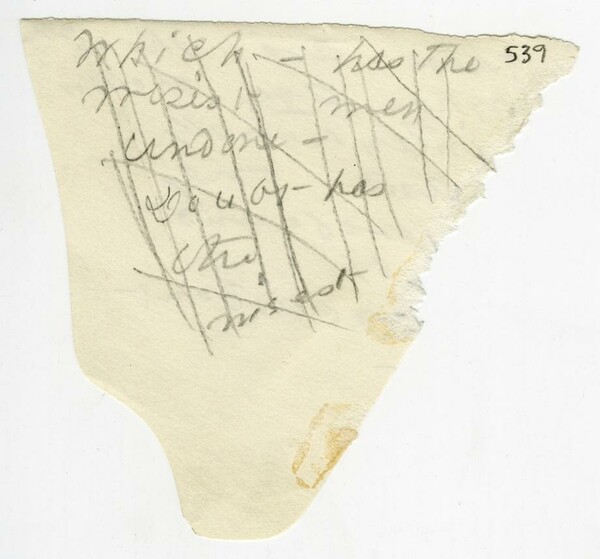 Which - has the 539
wisest men
undone -
Doubt has
the
wisest